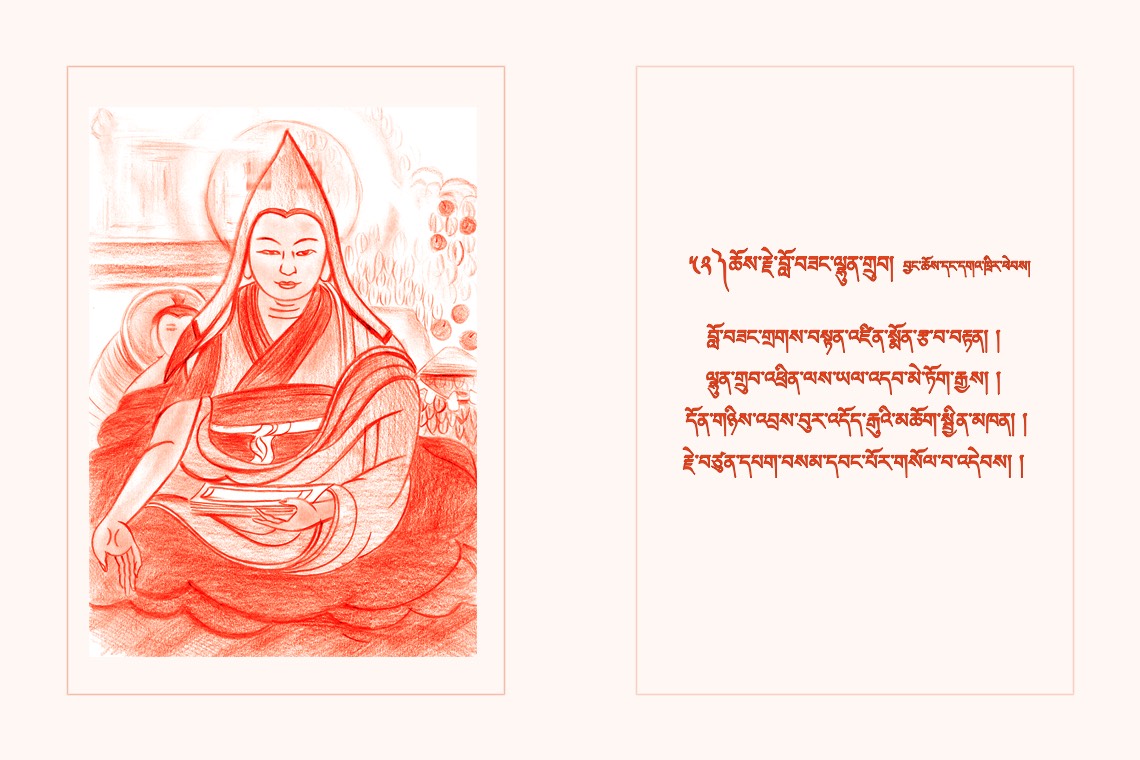 ༥༢ ༽ ཆོས་རྗེ་བློ་བཟང་ལྷུན་གྲུབ། བྱང་ཆོས་དང་དགའ་ཁྲིར་ཕེབས།
བློ་བཟང་གྲགས་བསྟན་འཛིན་སྨོན་རྩ་བ་བརྟན། །
ལྷུན་གྲུབ་འཕྲིན་ལས་ཡལ་འདབ་མེ་ཏོག་རྒྱས། །
དོན་གཉིས་འབྲས་བུར་འདོད་རྒུའི་མཆོག་སྦྱིན་མཁན། །
རྗེ་བཙུན་དཔག་བསམ་དབང་པོར་གསོལ་བ་འདེབས། །